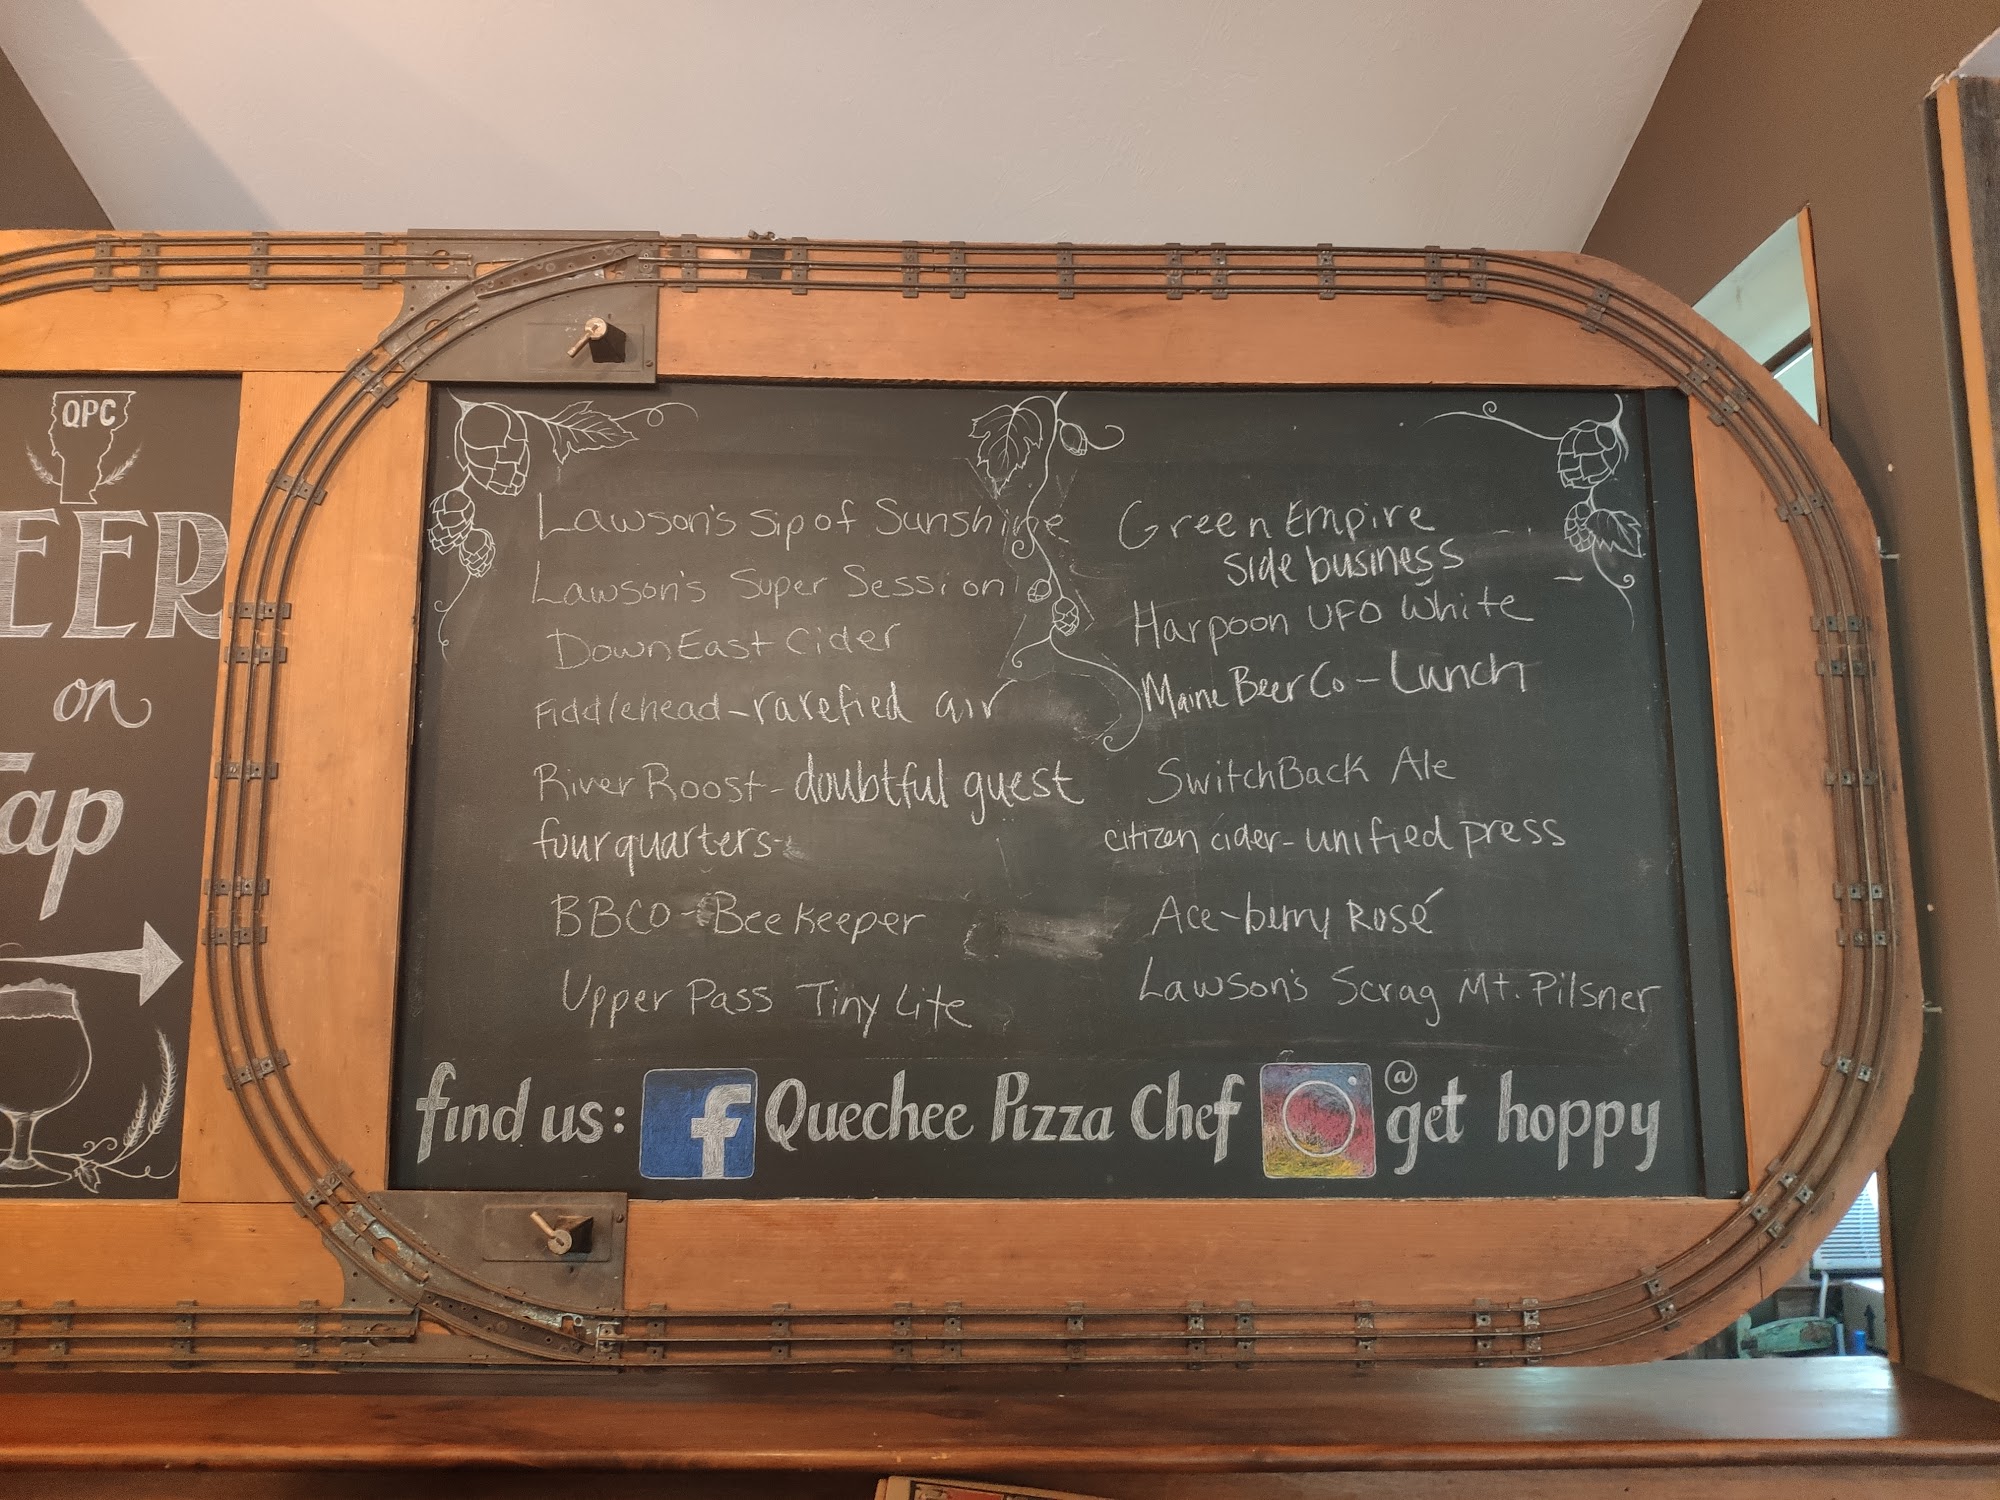 QPC
EER
on
Tap
Lawson's Sip of Sunshine
Lawson's Super Session
DownEast Cider
Fiddlehead-rarefied air
River Roost-doubtful guest
four quarters-
BBCO-Beekeeper
Upper Pass Tiny Lite
Green Empire
side business
Harpoon UFO White
Maine Beer Co-Lunch
SwitchBack Ale
citizen cider-unified press
Ace-berry Rosé
Lawson's Scrag Mt. Pilsner
find us: f Quechee Pizza Chef @get hoppy